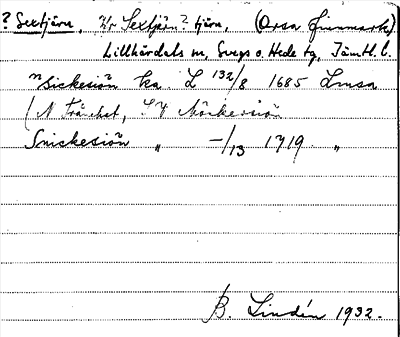 ? Sextjärn, Kr Sextjärn? tjärn, (Orsa finnmark)
Lillhärdals sn, Svegs o. Hede tg, Jämtl. l.
Sickesiön ka L 132/8 1685 Lmsa
(N Tränket, SV Mörkersiön
Snickesiön " –/13 1719. "
B. Lindén 1932.